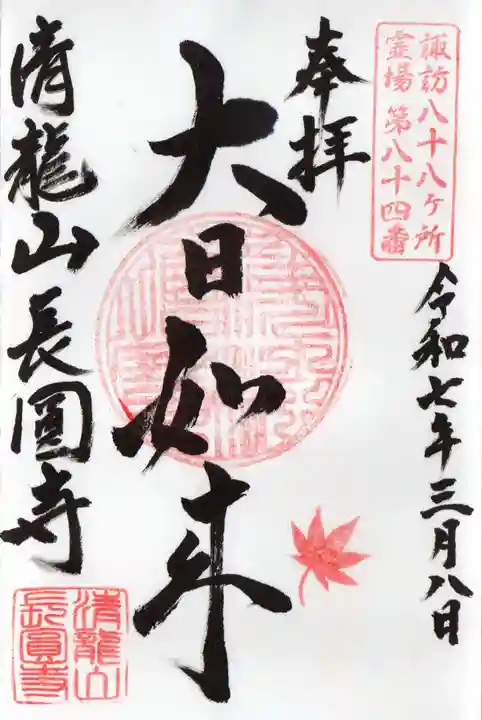 諏訪八十八ヶ所
霊場 第八十四番
令和七年三月八日
奉拝
大日如来
清龍山長圓寺
清龍山
長圓寺